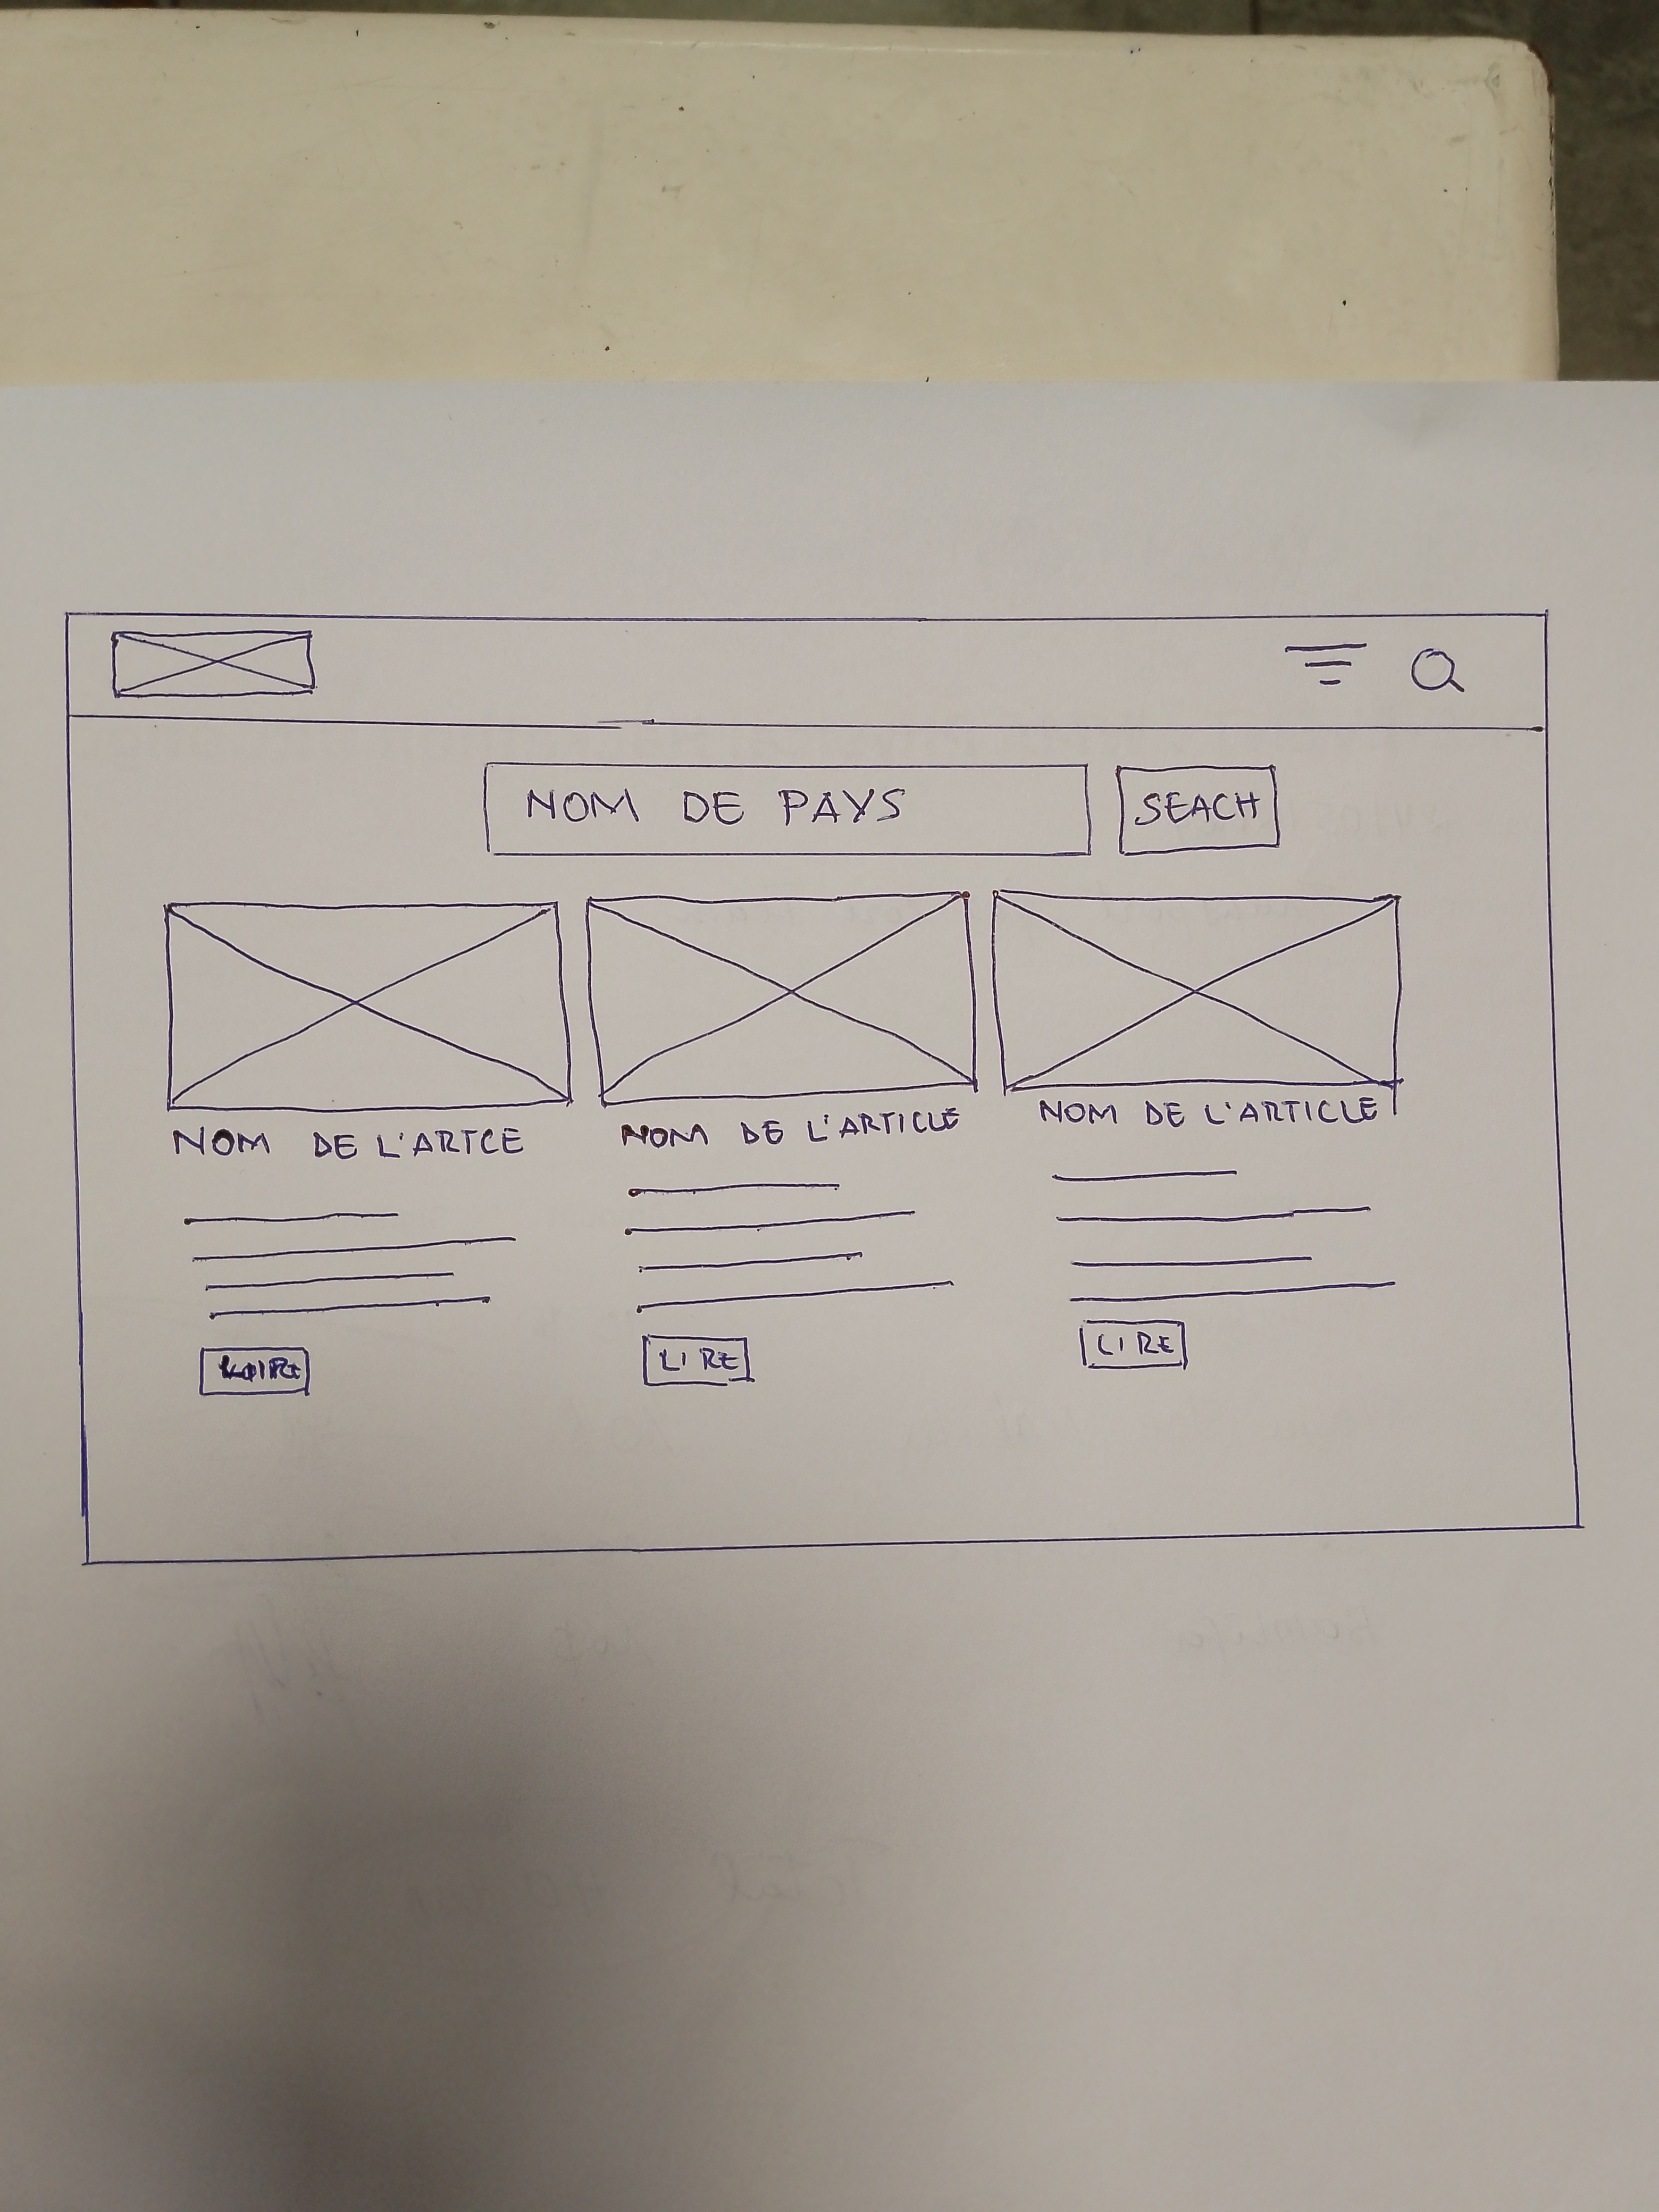 NOM DE PAYS
SEACH
NOM DE L'ARTCE
NOM DE L'ARTICLE
NOM DE L'ARTICLE
LIRE
LIRE